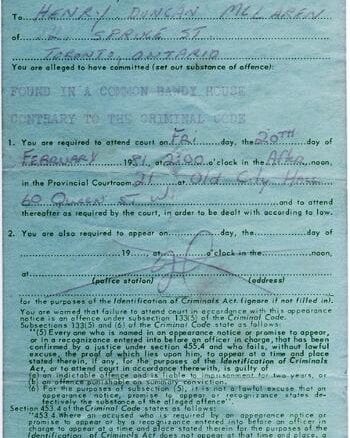 To HENRY DUNCAN McLAREN
of 2 SPRUCE ST
TORONTO, ONTARIO
You are alleged to have committed (set out substance of offence):
FOUND IN A COMMON BAWDY HOUSE
CONTRARY TO THE CRIMINAL CODE
1. You are required to attend court on FRI day, the 20TH day of
FEBRUARY 1981, at 2:00 o'clock in the After noon,
in the Provincial Courtroom 21 at Old City Hall
60 Queen St W. and to attend
thereafter as required by the court, in order to be dealt with according to law.
2. You are also required to appear on day, the day of
19 , at o'clock in the noon,
at
(police station) (address)
for the purposes of the Identification of Criminals Act. (ignore if not filled in).
You are warned that failure to attend court in accordance with this appearance
notice is an offence under subsection 133(5) of the Criminal Code.
Subsections 133(5) and (6) of the Criminal Code state as follows:
"(5) Every one who is named in an appearance notice or promise to appear,
or in a recognizance entered into before an officer in charge, that has been
confirmed by a justice under section 455.4 and who fails, without lawful
excuse, the proof of which lies upon him, to appear at a time and place
stated therein, if any, for the purposes of the Identification of Criminals
Act, or to attend court in accordance therewith, is guilty of
(a) an indictable offence and is liable to imprisonment for two years, or
(b) an offence punishable on summary conviction.
(6) For the purposes of subsection (5), it is not a lawful excuse that an
appearance notice, promise to appear or recognizance states de-
fectively the substance of the alleged offence".
Section 453.4 of the Criminal Code states as follows:
"453.4 Where an accused who is required by an appearance notice or
promise to appear or by a recognizance entered into before an officer in
charge to appear at a time and place stated therein for the purposes of the
Identification of Criminals Act does not appear at that time and place, a